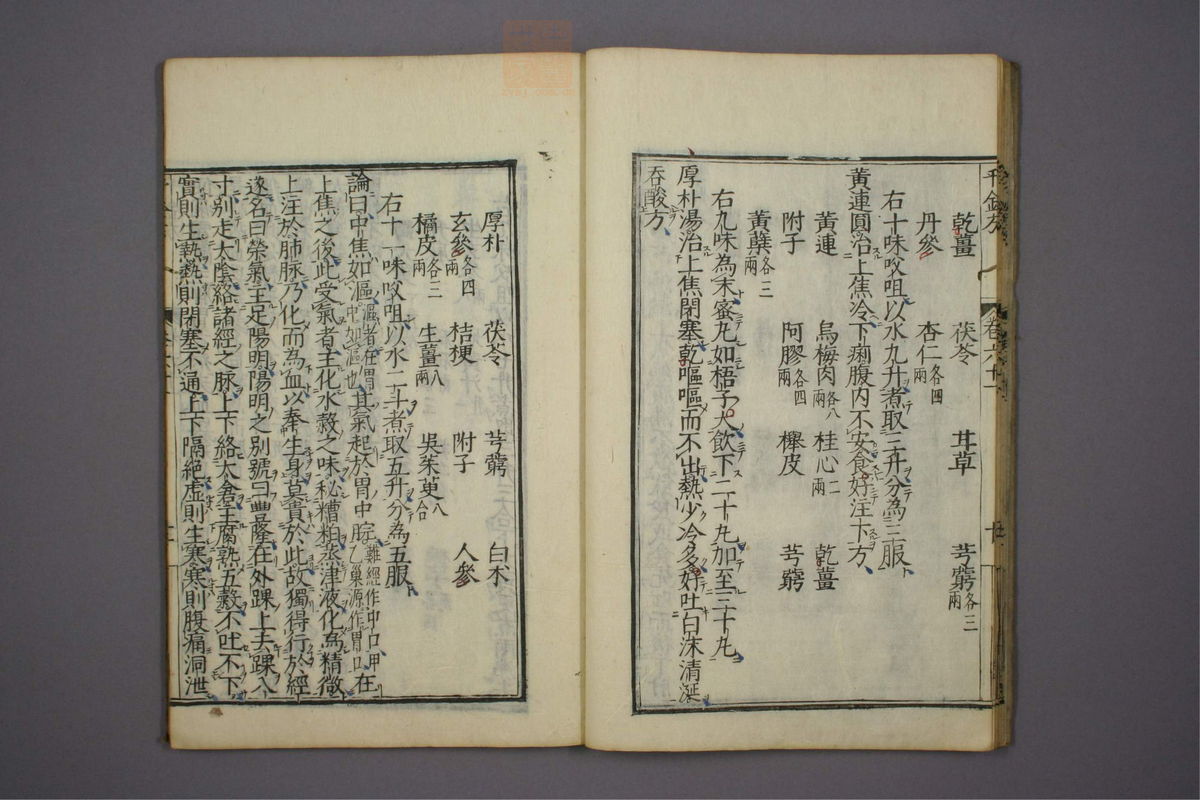 千金方
乾薑 茯苓 甘草 芎藭各三兩
丹參 杏仁各四兩
右十味㕮咀以水九升煮取三升分為三服
黃連圓治上焦冷下痢腹內不安食好注下方
黃連 烏梅肉各八兩 桂心二兩 乾薑
附子 阿膠各四兩 櫸皮 芎藭
黃蘗各三兩
右九味為末蜜丸如梧子大飲下二十丸加至三十丸
厚朴湯治上焦閉塞乾嘔嘔而不出熱少冷多好吐白沫清涎
吞酸方
厚朴 茯苓 芎藭 白朮
玄參各四兩 桔梗 附子 人參
橘皮各三兩 生薑八兩 吳茱萸八合
右十一味㕮咀以水二斗煮取五升分為五服
論曰中焦如漚漚者在胃中如漚也其氣起於胃中脘難經作中口甲乙巢源作胃口在
上焦之後此受氣者主化水穀之味秘糟粕蒸津液化為精微
上注於肺脉乃化而為血以奉生身莫貴於此故獨得行於經
遂名曰榮氣主足陽明陽明之別號曰豐隆在外踝上去踝八
寸別走太陰絡諸經之脉上下絡太倉主腐熟五穀不吐不下
實則生熱熱則閉塞不通上下隔絕虛則生寒寒則腹痛洞泄